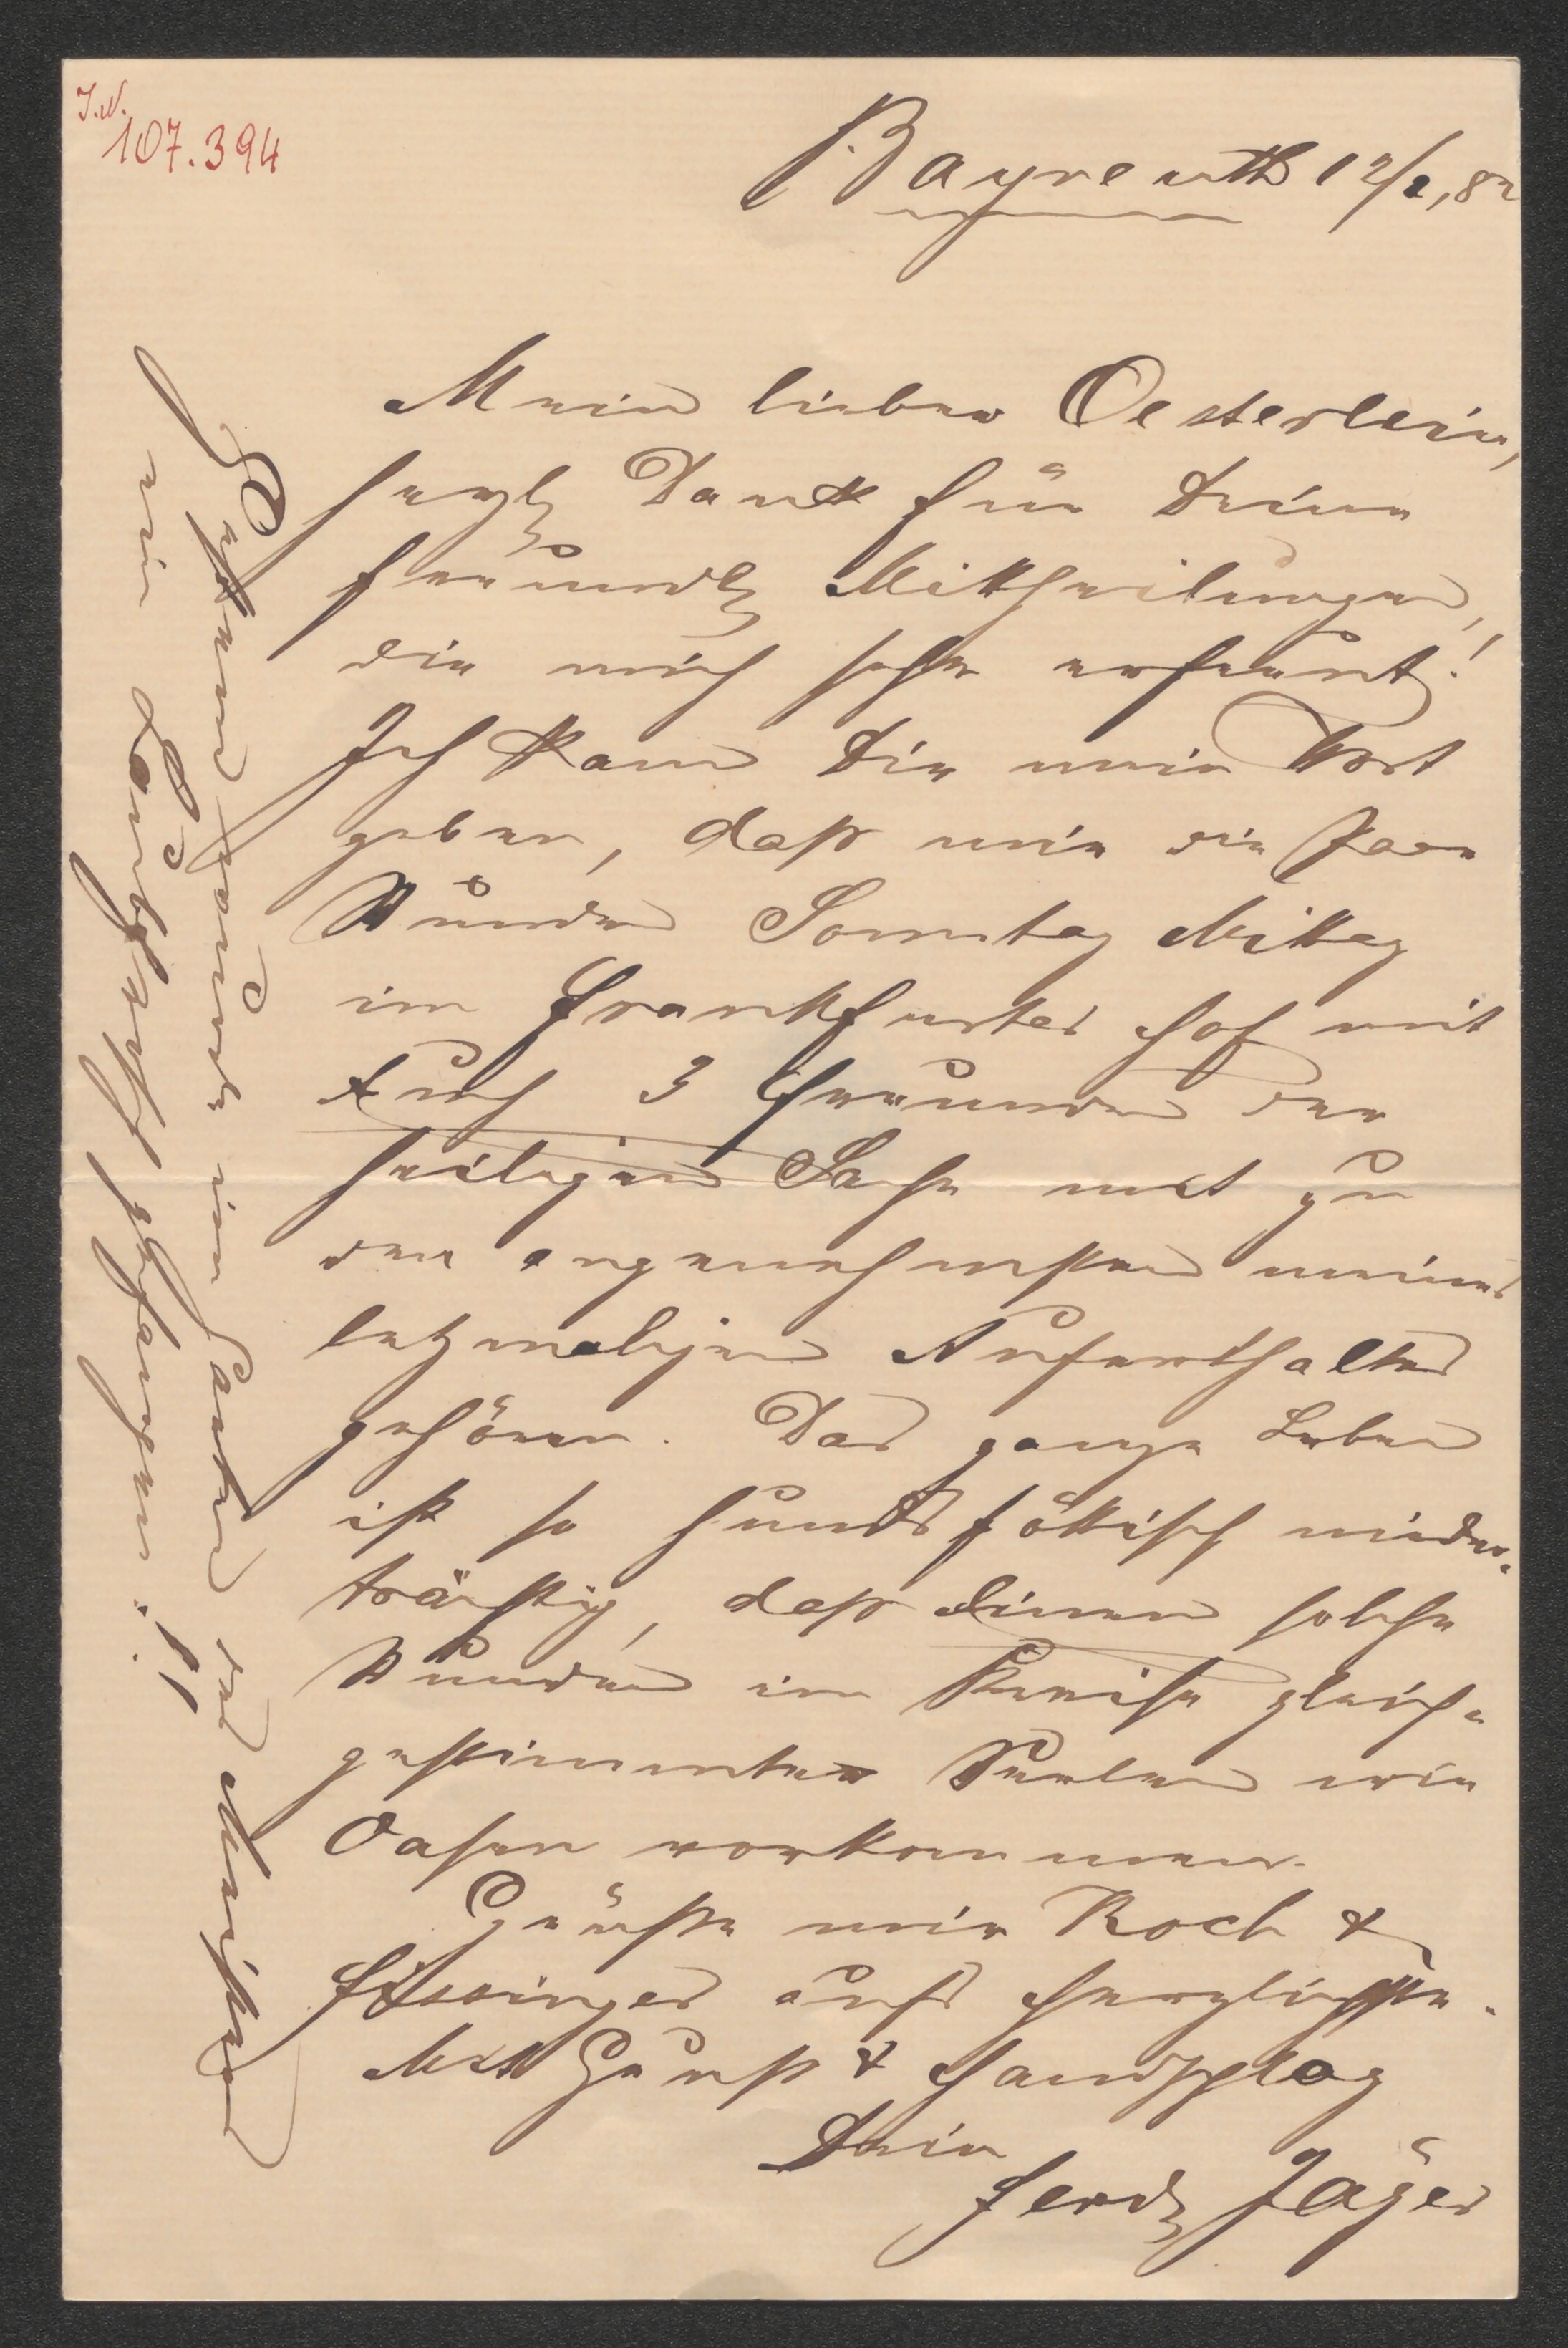 I.N.
107.394
Bayreuth 12/2, 82
Mein lieber Oesterlein,
herzl Dank für Deine
freundl Mittheilungen,
die mich sehr erfreut!
Ich kann Dir mein Wort
geben, daß mir die paar
Stunden Sonntag Mittag
im Frankfurter Hof mit
Euch 3 Freunden der
heiligen Sache mit zu
den angenehmsten meines
letzmaligen Aufenthaltes
gehören. Das ganze Leben
ist so hundsföttisch nieder-
trächtig, daß Einem solche
Stunden im Kreise gleich-
gestimmter Seelen wie
Oasen vorkommen.
Grüße mir Koch &
aufs herzlichste.
Mit Gruß & Handschlag
Dein
Ferd Jäger
Gestern wurde im Garten des Meisters
ein gefangen!!